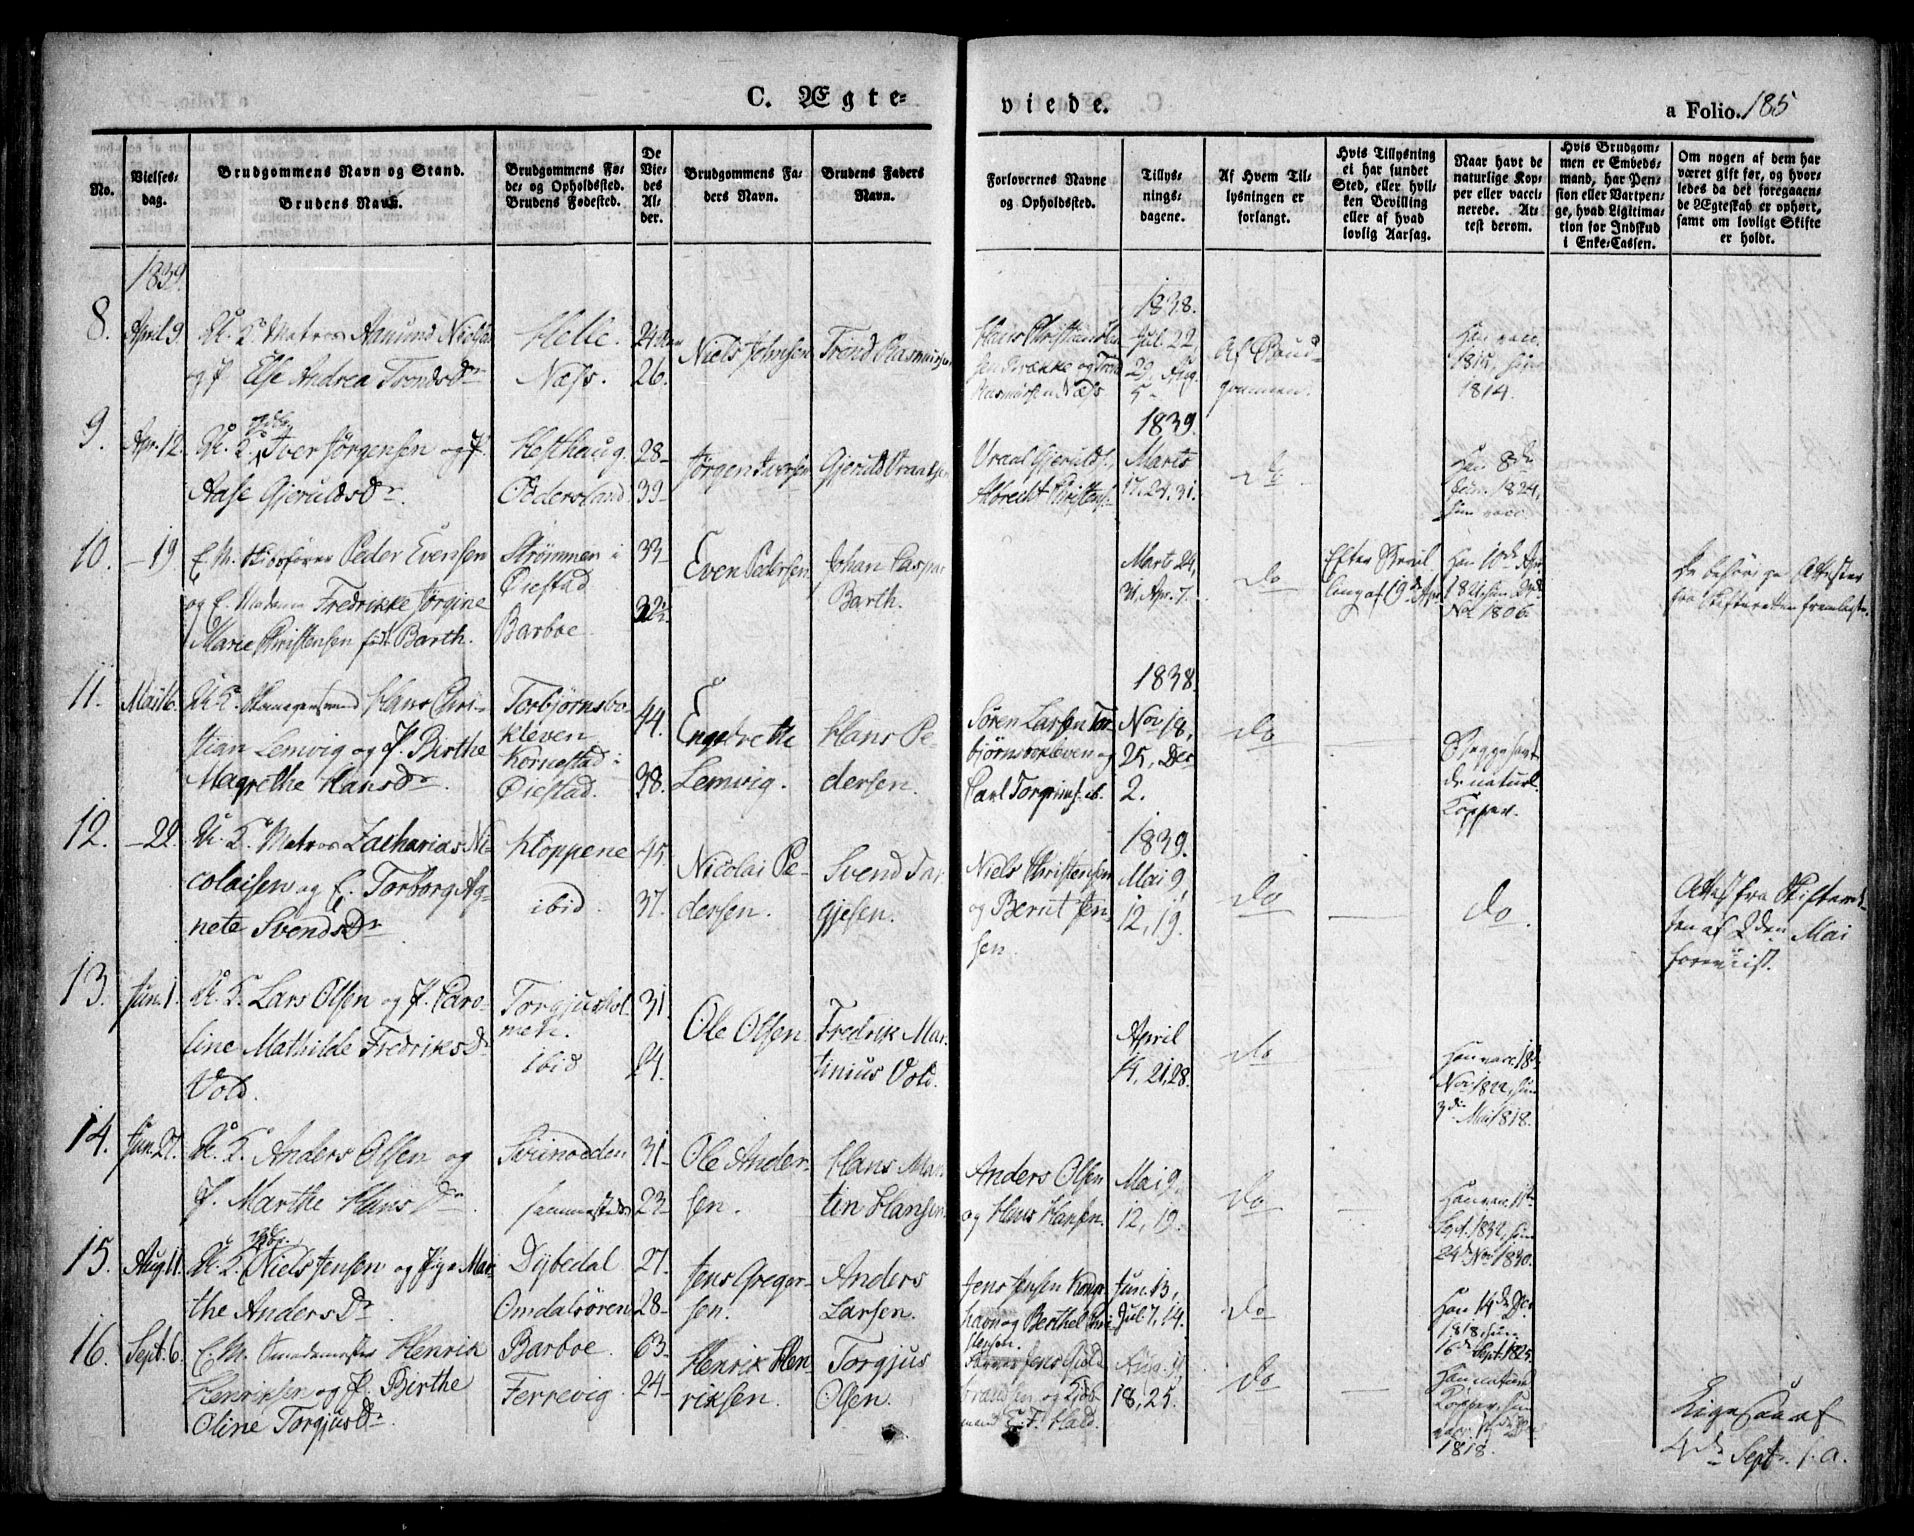 C. Ægte-
viede.
a Folio. 185
No.
Vielses-
dag.
Brudgommens Navn og Stand.
Brudens Navn.
Brudgommens Fø-
de- og Opholdssted.
Brudens Fødested.
De
Vie-
des
Al-
der.
Brudgommens Fa-
ders Navn.
Brudens Faders
Navn.
Forlovernes Navne
og Opholdssted.
Tillys-
nings-
dagene.
Af Hvem Til-
lysningen er
forlangt.
Hvis Tillysning
ei har fundet
Sted, eller hvil-
ken Bevilling
eller af hvad
lovlig Aarsag.
Naar havt de
naturlige Kop-
per eller vacci-
nerede. At-
test derom.
Hvis Brudgom-
men er Embeds-
mand, har Pen-
sion eller Vartpen-
ge, hvad Ligitima-
tion for Indskud
i Enke-Cassen.
Om nogen af dem har
været gift før, og hvor-
ledes da det foregaaen-
de Ægteskab er ophørt,
samt om lovligt Skifte
er holdt.
1839.
8.
April 9.
U. K. Matros Aanund Nielsen
og P. Else Andrea Tronds Dr
Helle.
Næss.
24
26.
Niels Johnsen
Trond Rasmussen
1838.
Jul. 22,
29, Aug.
5.
Af Brud-
gommen.
Han vacc.
1815, hun
1814.
9.
Apr. 12.
U. K. Iver Jørgensen og P.
Aase Gjerulds Dr.
Hesthaug.
Oddersland
28-
39-
Jørgen Iversen
Gjeruld Vraalsen
Vraal Gjerulds.
Albrecht Christens.
1839.
Marts
17. 24, 31.
do
Han 8de
1824,
hun vacc.
10.
-19
E. M. Skibsfører Peder Evensen
og E. Madame Fredrikke Jørgine
Marie Christensen født Barth.
Strømmen i
Øiestad
Barboe.
33-
32
Even Pedersen
Johan Caspar
Barth.
Marts 24,
31, Apr. 7.
do
Efter Bevil-
ling af 19de Apr.
Han 10de Apr.
1821, hun
Nov. 1806.
De behørige Attester
fra Skifteretten fremlagte.
11.
Mai 16.
U. K. Hans Chri-
stian Lemvig og P. Birthe
Magrethe Hans Dr.
Torbjørnsbo-
kleven
Kornestad i
Øiestad.
44.
38.
Engebrethe
Lemvig.
Hans Pe-
dersen.
Søren Larsen Tor-
bjørnsbokleven og
Carl Torgrims. ib.
1838.
Nov. 18,
25, Der
2.
do
Begge havt
de naturl.
Kopper.
12.
-22.
U. K. Matros Zacharias Ni-
colaisen og E. Torborg Ag-
nete Svends Dr
Kloppene
ibid.
45.
37.
Nicolai Pe-
dersen.
Svend Tar-
gjesen.
Niels Christensen
og Bernt Jen-
sen.
1839.
Mai 9,
12, 19.
do
do.
Attest fra Skifteret-
ten af 2den Mai
foreviist.
13.
Jun. 1.
U. K. Lars Olsen og P. Caro-
line Mathilde Fredriks Dr
Vold.
Torgjushol-
men.
ibid
31.
24.
Ole Olsen
Fredrik Mar-
tinius Vold.
April
14, 21, 28.
do
Han vacc. 18de
Nov. 1822, hun
3de Mai 1818.
14.
Jun. 27.
U. K. Anders Olsen og
P. Marthe Hans Dr.
Sviinodden
sammesteds
31-
23-
Ole Ander-
sen.
Hans Mar-
tin Hansen
Anders Olsen
og Hans Hansen.
Mai 9.
12, 19.
do
Han vacc. 11te
Sept. 1832, hun
24de Nov. 1830.
15.
Aug. 11.
U. K. Niels Jensen og Pige Mar-
the Anders Dr
Dybedal
Omdalsøren
27.
28-
Jens Greger-
sen.
Anders
Larsen.
Jens Jensen Konge
havn og Berthel Chri-
stensen.
Jun. 13,
Jul. 7, 14.
do
Han 14de Dec.
1818, hun
16de Sept. 1825.
16.
Sept. 6.
E. M. Henrik
Henriksen og P. Birthe
Oline Torgjus Dr.
Barboe.
Ferrevig
63-
24-
Henrik Hen-
riksen.
Torgjus
Olsen.
Aug. 11,
18, 25.
do
Han naturl.
Kopper, hun
vacc.
1818.
4de Sept.